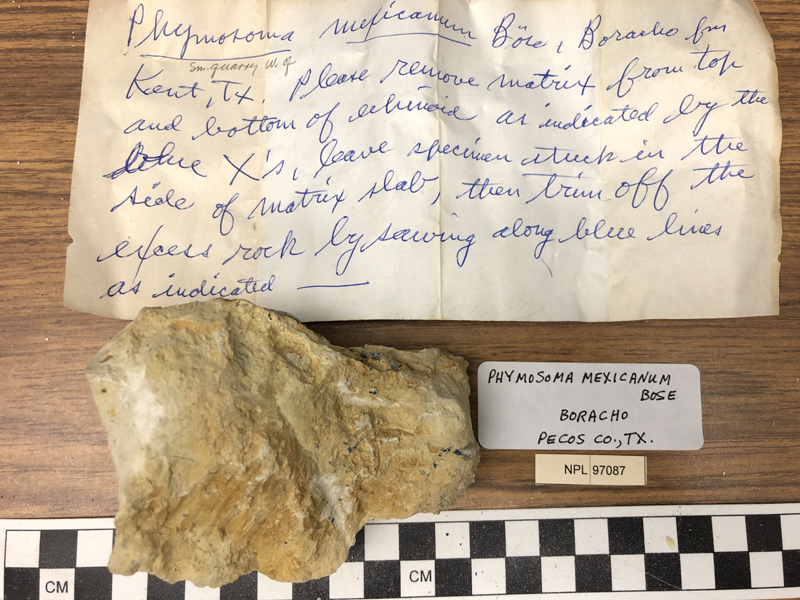 Phymosoma mexicanum Böse, Boracho fm
Sm. quarry W. of
Kent, Tx. Please remove matrix from top
and bottom of echinoid as indicated by the
blue X's, leave specimen stuck in the
side of matrix slab, then trim off the
excess rock by sawing along blue lines
as indicated —
PHYMOSOMA MEXICANUM
BOSE
BORACHO
PECOS CO., TX.
NPL 97087
CM
CM